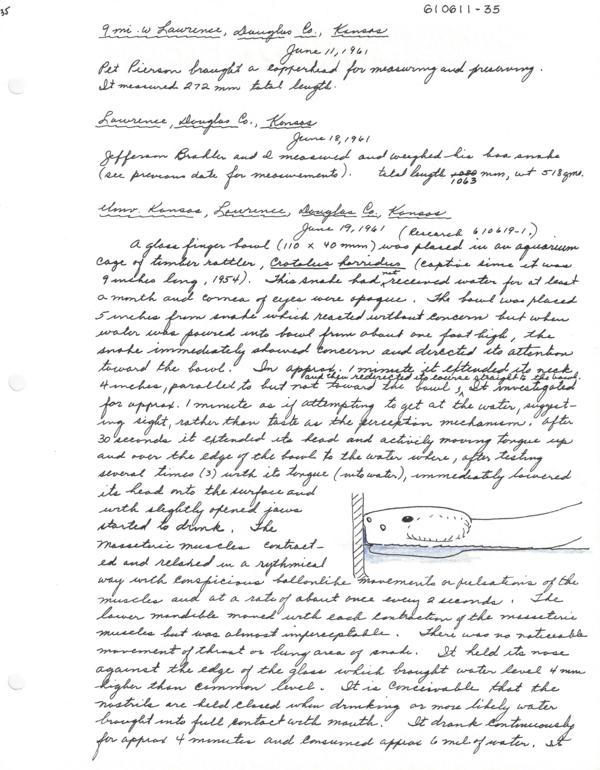 35
610611-35
9 mi. w Lawrence, Douglas Co., Kansas
June 11, 1961
Pet Pierson brought a copperhead for measuring and preserving.
It measured 272 mm total length.
Lawrence, Douglas Co., Kansas
June 18, 1961
Jefferson Brahler and I measured and weighed his boa snake
(see previous date for measurements). total length 1063 mm, wt 518 gms.
Univ. Kansas, Lawrence, Douglas Co., Kansas
June 19, 1961 (Research 610619-1.)
A glass finger bowl (110 x 40 mm) was placed in an aquarium
cage of timber rattler, Crotalus horridus (captive since it was
9 inches long, 1954). This snake had not received water for at least
a month and cornea of eyes were opaque. The bowl was placed
5 inches from snake which reacted without concern but when
water was poured into bowl from about one foot high, the
snake immediately showed concern and directed its attention
toward the bowl. In approx. 1 minute it extended its neck
4 inches, parallel to but not toward the bowl, and then redirected its course straight to the bowl. It investigated
for approx. 1 minute as if attempting to get at the water, suggest-
ing sight, rather than taste as the perception mechanism. After
30 seconds it extended its head and actively moving tongue up
and over the edge of the bowl to the water where, after testing
several times (3) with its tongue (into water), immediately lowered
its head onto the surface and
with slightly opened jaws
started to drink. The
masseteric muscles contract-
ed and relaxed in a rythmical
way with conspicious ballonlike movements or pulsations of the
muscles and at a rate of about once every 2 seconds. The
lower mandible moved with each contraction of the masseteric
muscles but was almost imperceptable. There was no noticeable
movement of throat or lung area of snake. It held its nose
against the edge of the glass which brought water level 4 mm
higher than common level. It is conceivable that the
nostrils are held closed when drinking or more likely water
brought into full contact with mouth. It drank continuously
for approx 4 minutes and consumed approx 6 mil of water. It